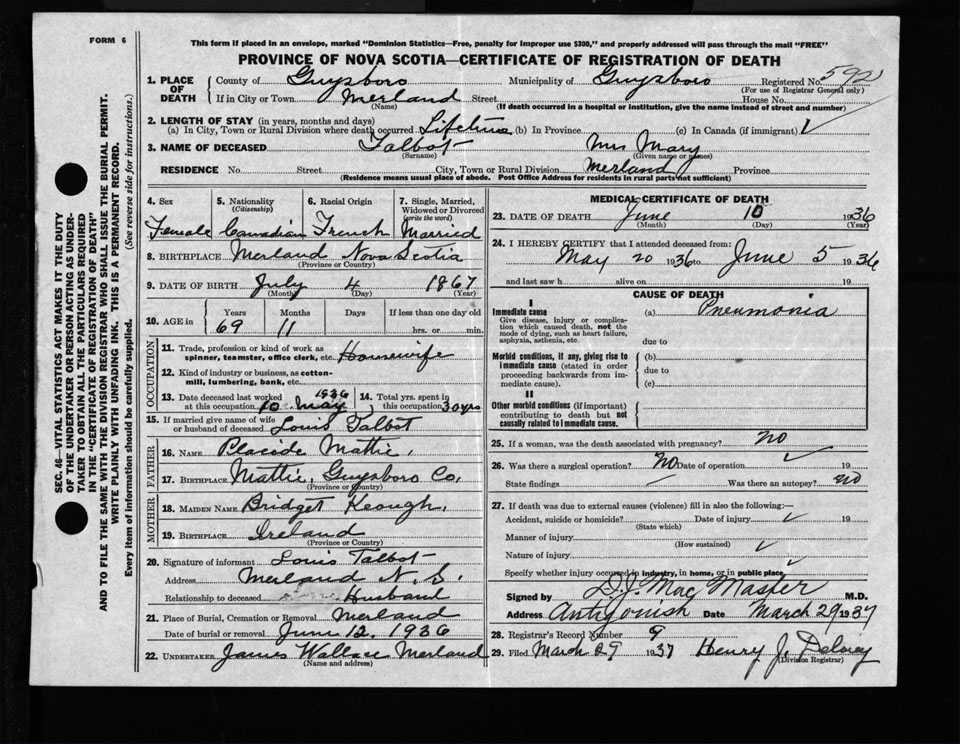 FORM 6
This form if placed in an envelope, marked "Dominion Statistics—Free, penalty for improper use $300," and properly addressed will pass through the mail "FREE"
PROVINCE OF NOVA SCOTIA—CERTIFICATE OF REGISTRATION OF DEATH
1. PLACE OF DEATH County of Guysboro Municipality of Guysboro Registered No. 592
(For use of Registrar General only)
If in City or Town Merland Street House No.
(Name) (If death occurred in a hospital or institution, give the name instead of street and number)
2. LENGTH OF STAY (in years, months and days)
(a) In City, Town or Rural Division where death occurred Lifetime (b) In Province (c) In Canada (if immigrant) ✓
3. NAME OF DECEASED Talbot Mrs Mary
(Surname) (Given name or names)
RESIDENCE No. Street City, Town or Rural Division Merland Province
(Residence means usual place of abode. Post Office Address for residents in rural parts not sufficient)
SEC. 46—VITAL STATISTICS ACT MAKES IT THE DUTY
OF THE UNDERTAKER OR PERSON ACTING AS UNDER-
TAKER TO OBTAIN ALL THE PARTICULARS REQUIRED
IN THE "CERTIFICATE OF REGISTRATION OF DEATH"
AND TO FILE THE SAME WITH THE DIVISION REGISTRAR WHO SHALL ISSUE THE BURIAL PERMIT.
WRITE PLAINLY WITH UNFADING INK. THIS IS A PERMANENT RECORD.
Every item of information should be carefully supplied. (See reverse side for instructions.)
4. Sex 5. Nationality 6. Racial Origin 7. Single, Married,
(Citizenship) Widowed or Divorced
(Write the word)
Female Canadian French Married
8. BIRTHPLACE Merland Nova Scotia
(Province or Country)
9. DATE OF BIRTH July 4 1867
(Month) (Day) (Year)
10. AGE in Years Months Days If less than one day old
69 11 hrs. or min.
OCCUPATION
11. Trade, profession or kind of work as
spinner, teamster, office clerk, etc. Housewife
12. Kind of industry or business, as cotton-
mill, lumbering, bank, etc.
13. Date deceased last worked 1936 14. Total yrs. spent in
at this occupation 10 May this occupation 30 yrs
15. If married give name of wife
or husband of deceased Louis Talbot
FATHER
16. NAME Placide Mattie,
17. BIRTHPLACE Mattie, Guysboro Co,
(Province or Country)
MOTHER
18. MAIDEN NAME Bridget Keough,
19. BIRTHPLACE Ireland
(Province or Country)
20. Signature of informant Louis Talbot
Address Merland N.S.
Relationship to deceased Husband
21. Place of Burial, Cremation or Removal Merland
Date of burial or removal June 12. 1936
22. UNDERTAKER James Wallace Merland
(Name and address)
MEDICAL CERTIFICATE OF DEATH
23. DATE OF DEATH June 10 1936
(Month) (Day) (Year)
24. I HEREBY CERTIFY that I attended deceased from:
May 20 1936 to June 5 1936
and last saw h alive on 19
CAUSE OF DEATH
I
Immediate cause (a) Pneumonia
Give disease, injury or complica-
tion which caused death, not the
mode of dying, such as heart failure,
asphyxia, asthenia, etc. due to
Morbid conditions, if any, giving rise to (b)
immediate cause (stated in order due to
proceeding backwards from im-
mediate cause). (c)
II
Other morbid conditions (if important)
contributing to death but not
causally related to immediate cause.
25. If a woman, was the death associated with pregnancy? no
26. Was there a surgical operation? No Date of operation ✓ 19
State findings Was there an autopsy? no
27. If death was due to external causes (violence) fill in also the following:—
Accident, suicide or homicide? Date of injury ✓ 19
(State which)
Manner of injury
(How sustained)
Nature of injury ✓
Specify whether injury occurred in industry, in home, or in public place ✓
Signed by D.J. MacMaster M.D.
Address Antigonish Date March 29 1937
28. Registrar's Record Number 9
29. Filed March 29 1937 Henry J. Delorey
(Division Registrar)